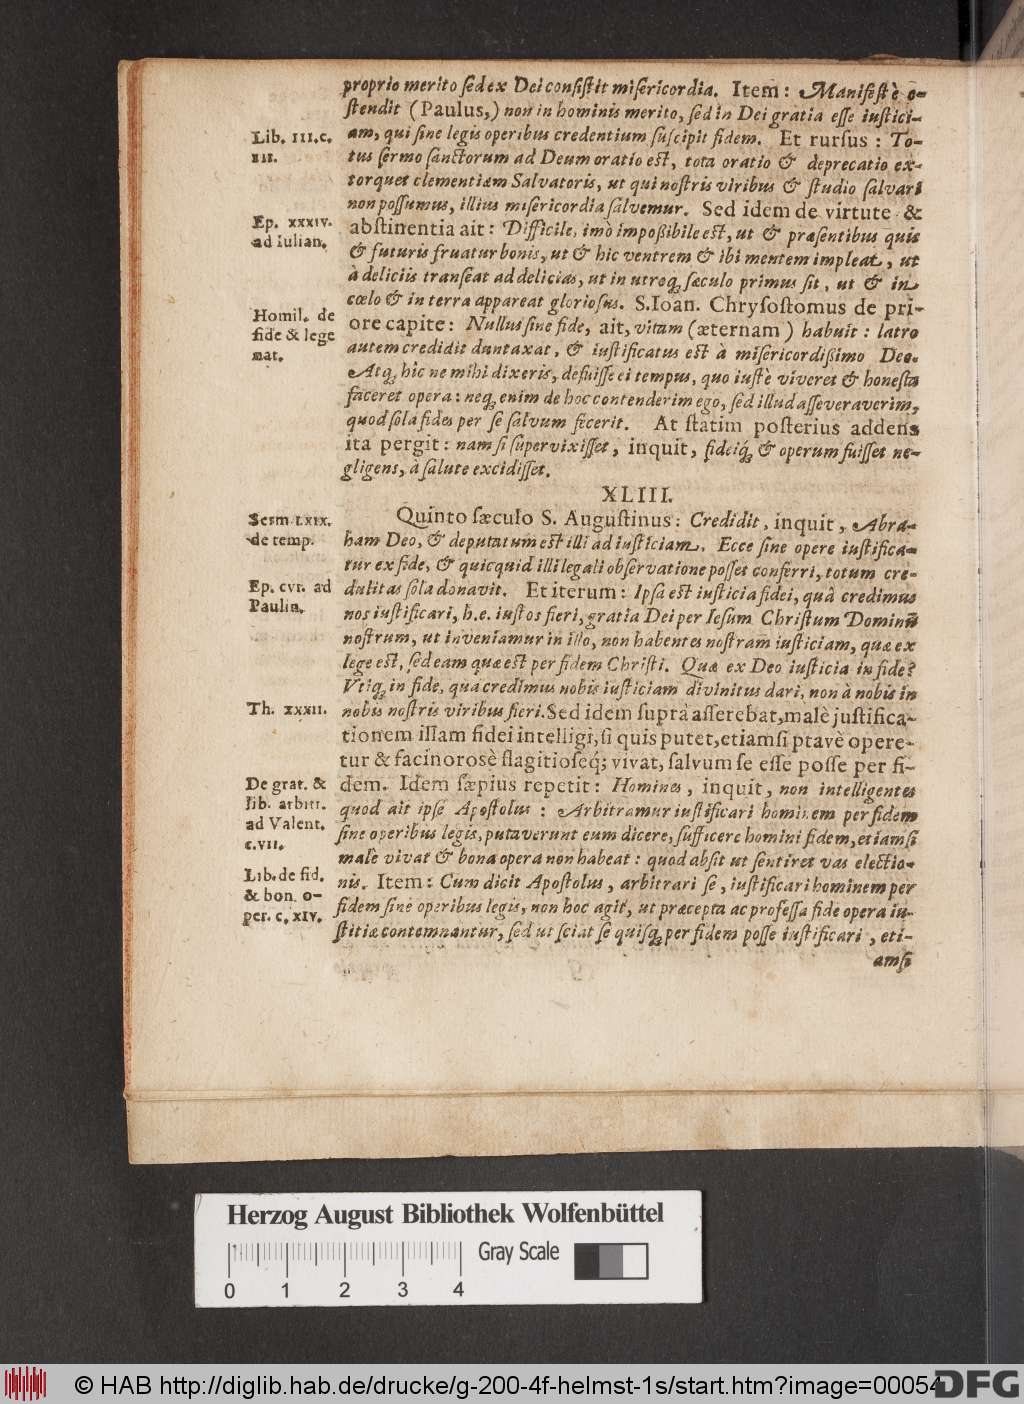 proprio merito sed ex Dei consistit misericordia. Item: Manifestè o-
stendit (Paulus,) non in hominis merito, sed in Dei gratia esse iustici-
Lib. III. c.
XII.
am, qui sine legis operibus credentium suscipit fidem. Et rursus: To-
tus sermo sanctorum ad Deum oratio est, tota oratio & deprecatio ex-
torquet clementiam Salvatoris, ut qui nostris viribus & studio salvari
non possumus, illius misericordia salvemur. Sed idem de virtute &
Ep. XXXIV.
ad Iulian.
abstinentia ait: Difficile, imò impoßibile est, ut & præsentibus quis
& futuris fruatur bonis, ut & hic ventrem & ibi mentem impleat, ut
à deliciis transeat ad delicias, ut in utroq; sæculo primus sit, ut & in
cœlo & in terra appareat gloriosus. S. Ioan. Chrysostomus de pri-
Homil. de
fide & lege
nat.
ore capite: Nullus sine fide, ait, vitam (æternam) habuit: latro
autem credidit duntaxat, & iustificatus est à misericordißimo Deo.
Atq; hic ne mihi dixeris, defuisse ei tempus, quo iustè viveret & honesta
faceret opera: neq; enim de hoc contenderim ego, sed illud asseveraverim,
quod sola fides per se salvum fecerit. At statim posterius addens
ita pergit: nam si supervixisset, inquit, fideiq́; & operum fuisset ne-
gligens, à salute excidisset.
XLIII.
Serm LXIX.
de temp.
Quinto sæculo S. Augustinus: Credidit, inquit, Abra-
ham Deo, & deputatum est illi ad iusticiam. Ecce sine opere iustifica-
tur ex fide, & quicquid illi legali observatione posset conferri, totum cre-
Ep. CVI. ad
Paulin.
dulitas sola donavit. Et iterum: Ipsa est iusticia fidei, quâ credimus
nos iustificari, h.e. iustos fieri, gratia Dei per Iesum Christum Dominũ
nostrum, ut inveniamur in illo, non habentes nostram iusticiam, quæ ex
lege est, sed eam quæ est per fidem Christi. Quæ ex Deo iusticia in fide?
Vtiq; in fide, qua credimus nobis iusticiam divinitus dari, non à nobis in
Th. XXXII.
nobis nostris viribus fieri. Sed idem suprà asserebat, malè justifica-
tionem illam fidei intelligi, si quis putet, etiamsi pravè opere-
tur & facinorosè flagitioseq́; vivat, salvum se esse posse per fi-
De grat. &
lib. arbitr.
ad Valent.
c. VII.
dem. Idem sæpius repetit: Homines, inquit, non intelligentes
quod ait ipse Apostolus: Arbitramur iustificari hominem per fidem
sine operibus legis, putaverunt eum dicere, sufficere homini fidem, etiamsi
malè vivat & bona opera non habeat: quod absit ut sentiret vas electio-
Lib. de fid.
& bon. o-
per. c. XIV.
nis. Item: Cum dicit Apostolus, arbitrari se, iustificari hominem per
fidem sine operibus legis, non hoc agit, ut præcepta ac professa fide opera iu-
stitiæ contemnantur, sed ut sciat se quisq; per fidem posse iustificari, eti-
amsi
Herzog August Bibliothek Wolfenbüttel
Gray Scale
0 1 2 3 4
© HAB http://diglib.hab.de/drucke/g-200-4f-helmst-1s/start.htm?image=00054
DFG